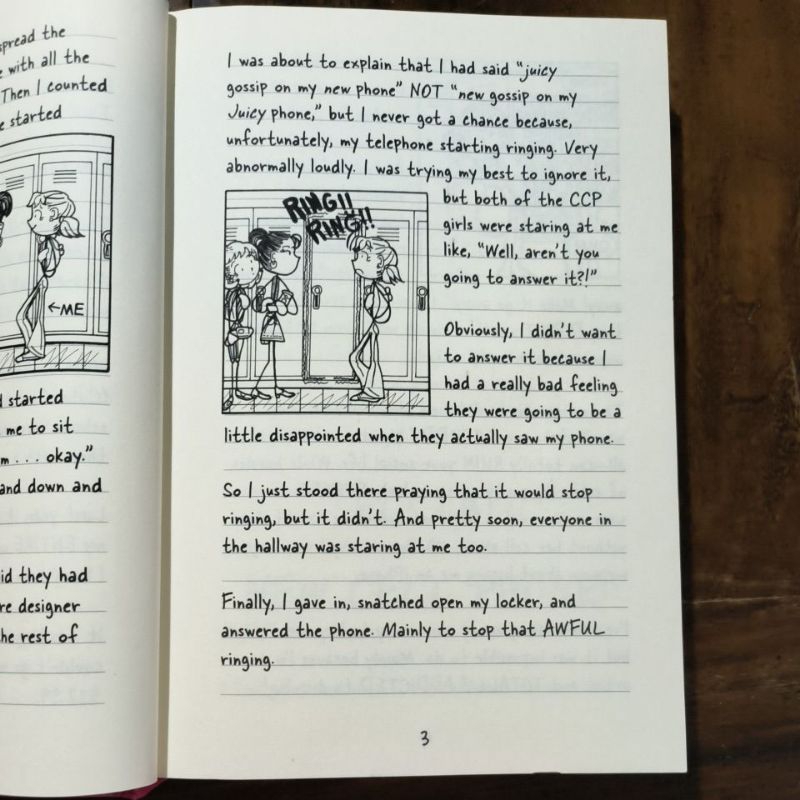 spread the
with all the
Then I counted
started
←ME
started
me to sit
m . . . okay."
and down and
id they had
re designer
the rest of
I was about to explain that I had said "juicy
gossip on my new phone" NOT "new gossip on my
Juicy phone," but I never got a chance because,
unfortunately, my telephone starting ringing. Very
abnormally loudly. I was trying my best to ignore it,
RING!!
RING!!
but both of the CCP
girls were staring at me
like, "Well, aren't you
going to answer it?!"
Obviously, I didn't want
to answer it because I
had a really bad feeling
they were going to be a
little disappointed when they actually saw my phone.
So I just stood there praying that it would stop
ringing, but it didn't. And pretty soon, everyone in
the hallway was staring at me too.
Finally, I gave in, snatched open my locker, and
answered the phone. Mainly to stop that AWFUL
ringing.
3